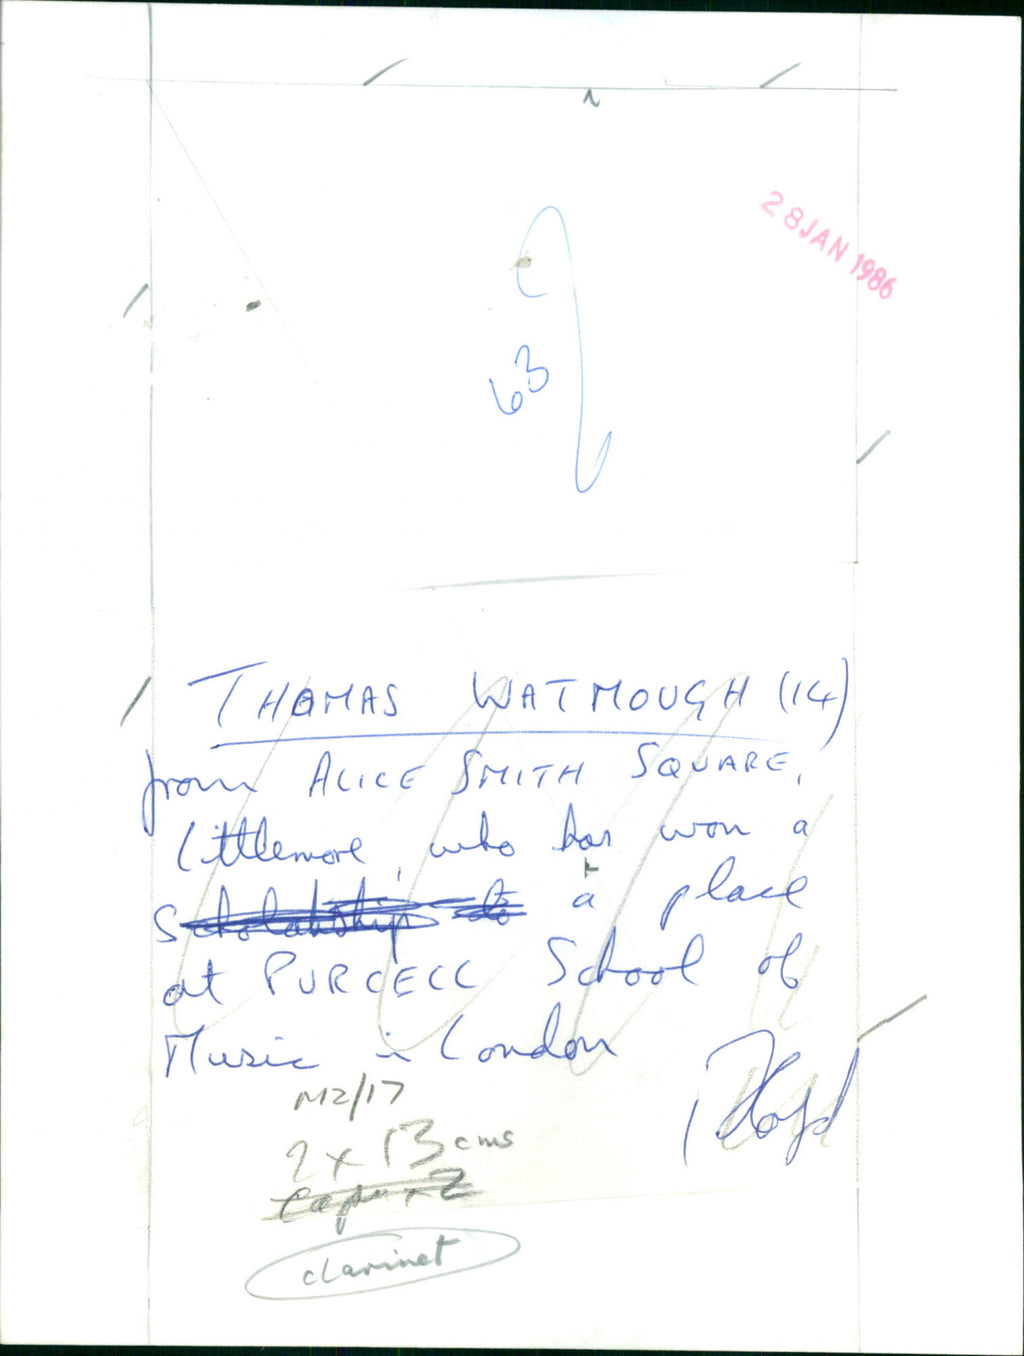 28 JAN 1986
63
THOMAS WATMOUGH (14)
from ALICE SMITH SQUARE,
Littlemore, who has won a
scholarship to a place
at PURCELL School of
Music in London
M2/17
2 x 13 cms
clarinet